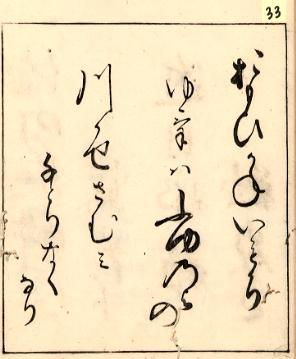 33
おもひかねいもかり
ゆけハ冬乃夜の
川風さむミ
千とりなく
なり